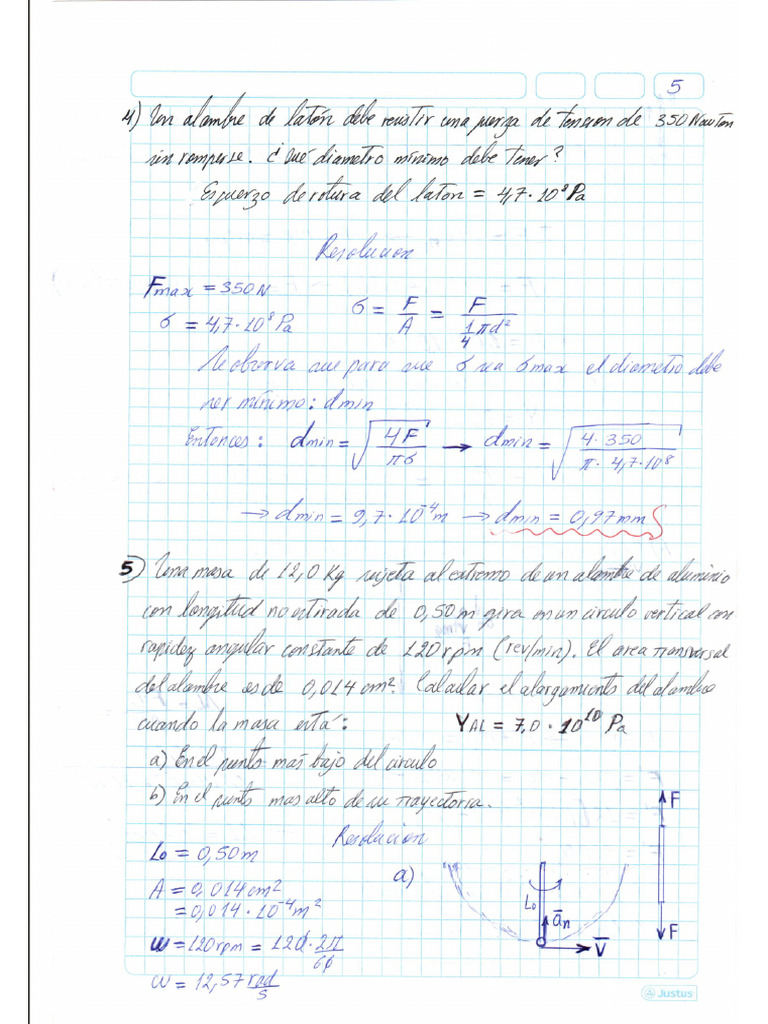 5
4) Un alambre de latón debe resistir una fuerza de tension de 350 Newton
sin romperse. ¿Qué diametro mínimo debe tener?
Esfuerzo de rotura del laton = 4,7·10⁸ Pa
Resolucion
Fmax = 350 N
σ = 4,7·10⁸ Pa
σ = F/A = F/(1/4 πd²)
Se observa que para que σ sea σmax el diametro debe
ser mínimo: dmin
Entonces: dmin = √(4F/πσ) → dmin = √(4·350/π·4,7·10⁸)
→ dmin = 9,7·10⁻⁴ m → dmin = 0,97mm
5) Una masa de 12,0 Kg sujeta al extremo de un alambre de aluminio
con longitud no estirada de 0,50 m gira en un circulo vertical con
rapidez angular constante de 120 rpm (rev/min). El area transversal
del alambre es de 0,014 cm². Calcular el alargamiento del alambre
cuando la masa está: YAL = 7,0·10¹⁰ Pa
a) En el punto más bajo del circulo
b) En el punto mas alto de su trayectoria.
Resolucion
Lo = 0,50 m
A = 0,014 cm²
= 0,014·10⁻⁴ m²
ω = 120 rpm = 120·2π/60
ω = 12,57 rad/s
a)
Lo
an
V
F
F
Justus